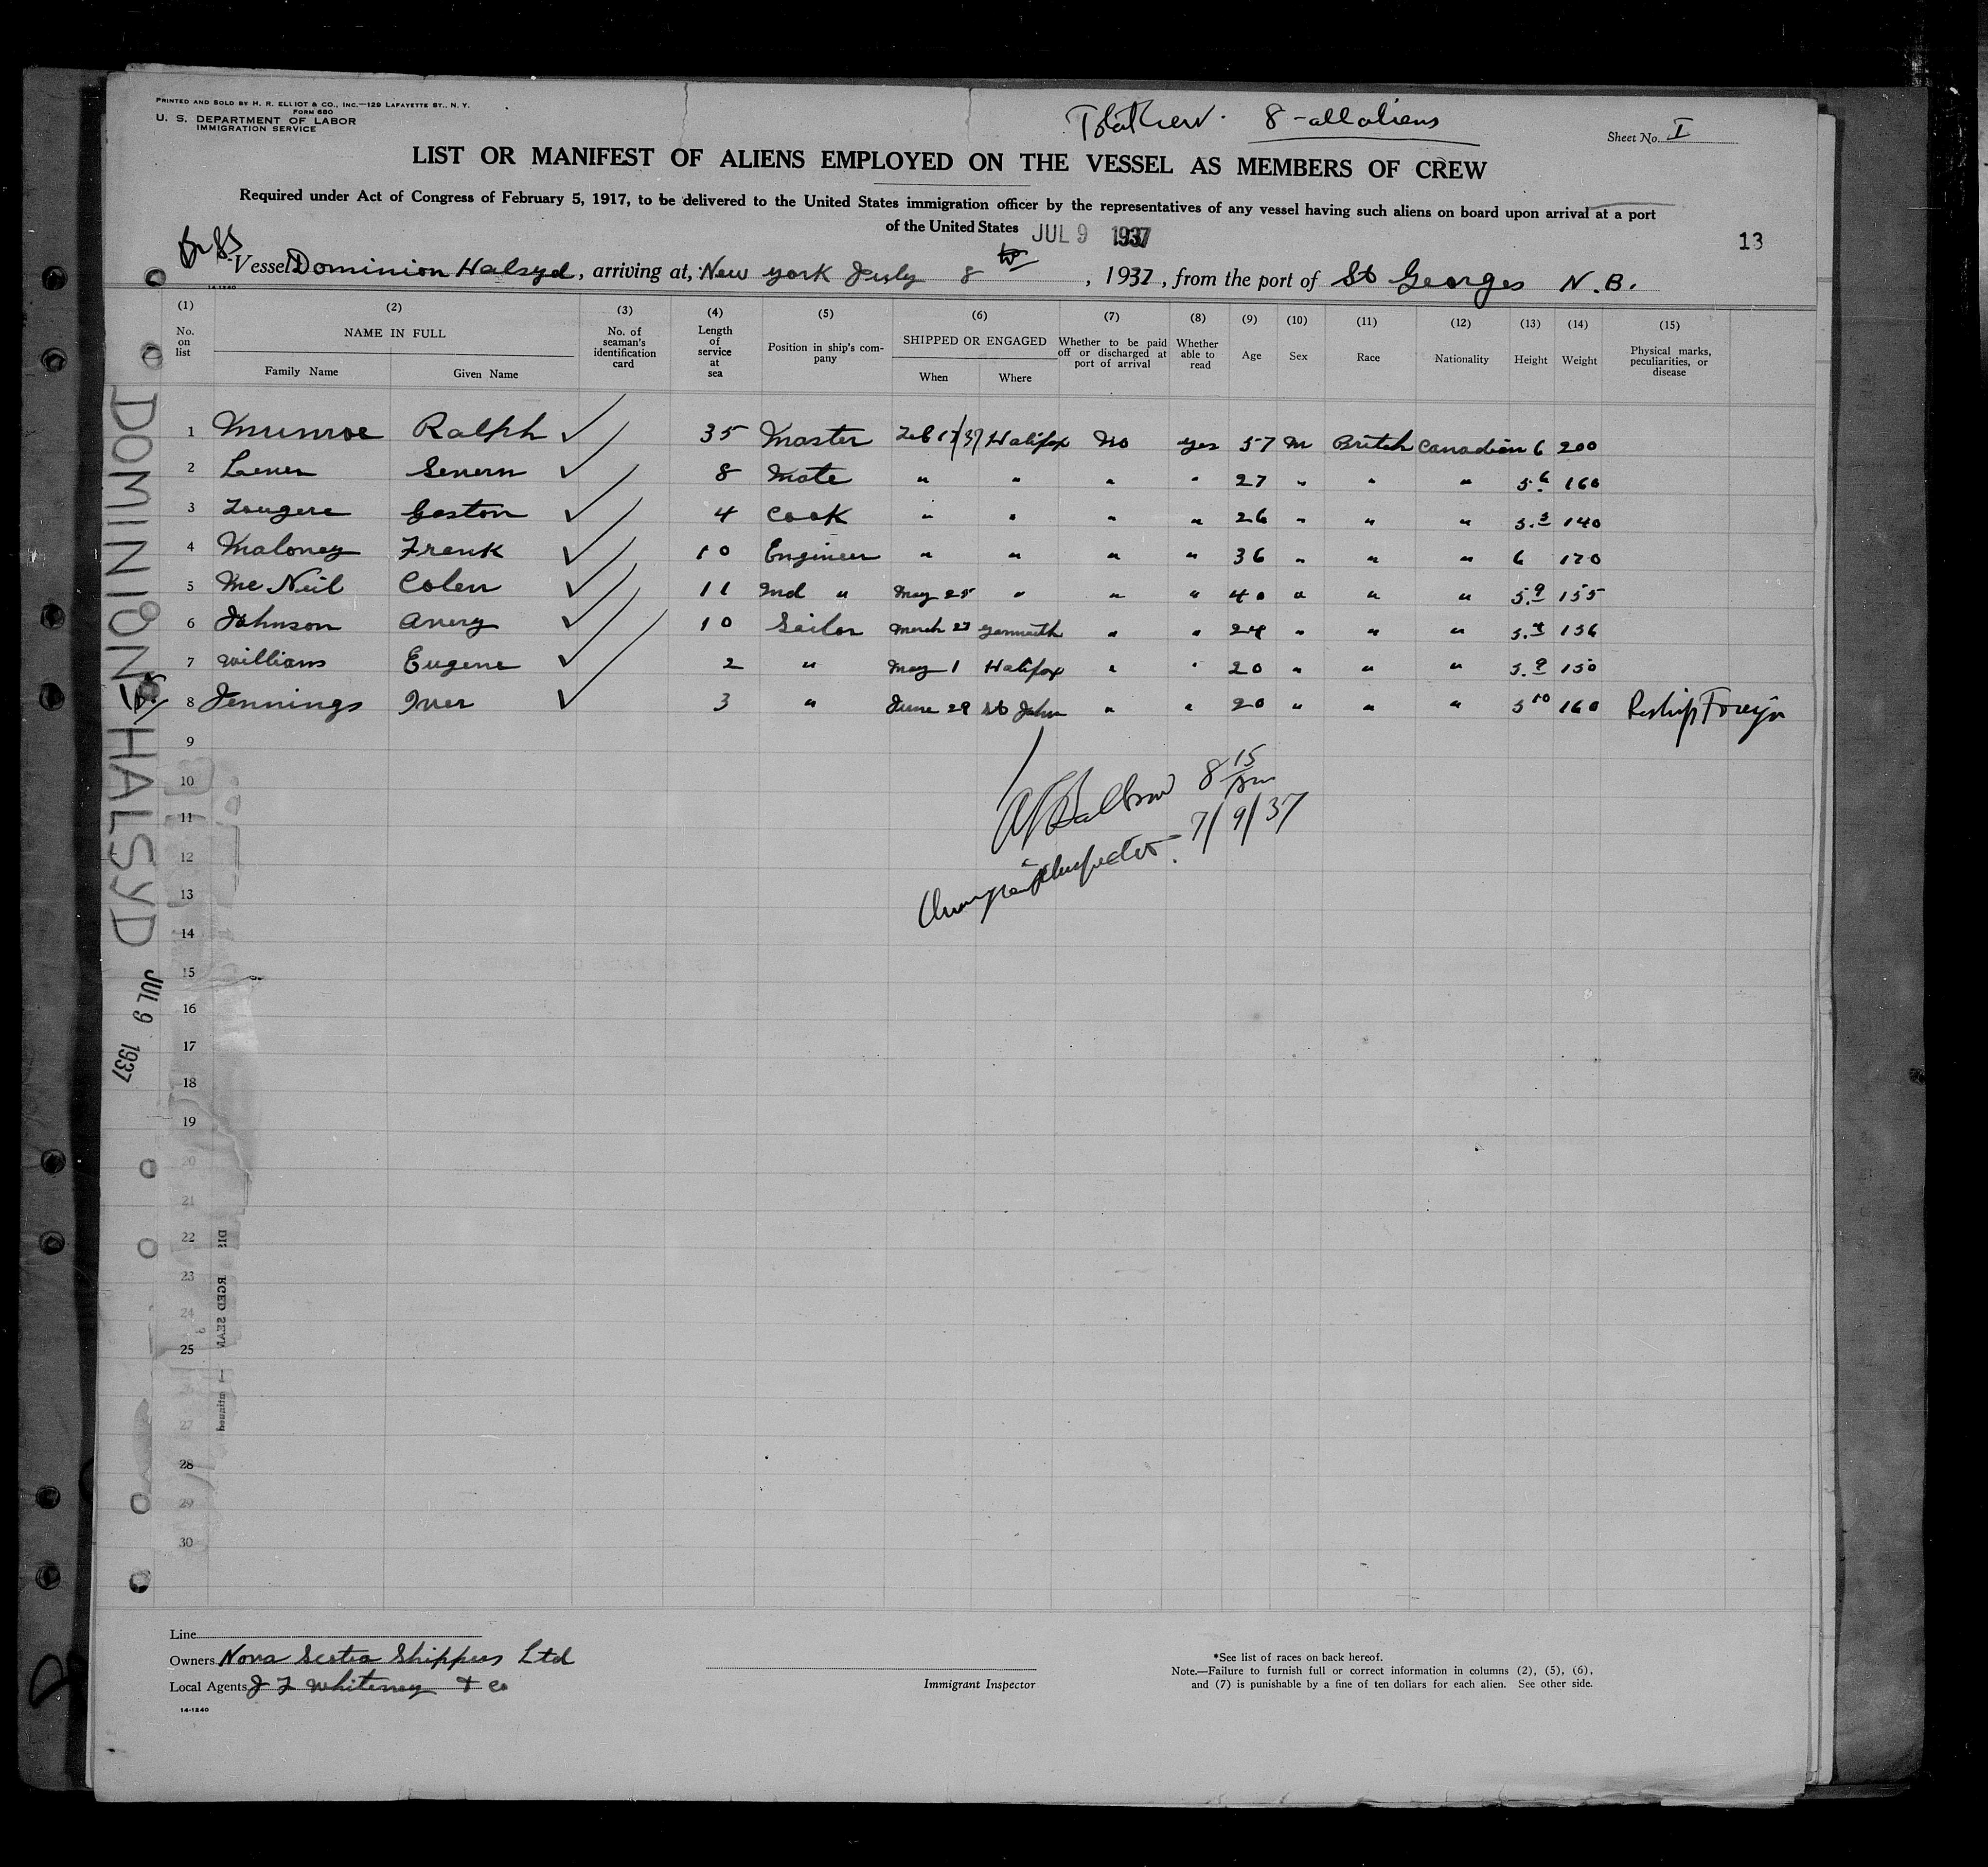 PRINTED AND SOLD BY H. R. ELLIOT & CO., INC.—129 LAFAYETTE ST., N. Y.
FORM 680
U. S. DEPARTMENT OF LABOR
IMMIGRATION SERVICE
Total Crew. 8 - all aliens
Sheet No. I
LIST OR MANIFEST OF ALIENS EMPLOYED ON THE VESSEL AS MEMBERS OF CREW
Required under Act of Congress of February 5, 1917, to be delivered to the United States immigration officer by the representatives of any vessel having such aliens on board upon arrival at a port
of the United States JUL 9 1937
13
Vessel Dominion Halsyd, arriving at, New York July 8 th, 1937, from the port of St Georges N.B.
14-1240
(1) (2) (3) (4) (5) (6) (7) (8) (9) (10) (11) (12) (13) (14) (15)
No. on list NAME IN FULL Family Name Given Name No. of seaman's identification card Length of service at sea Position in ship's company SHIPPED OR ENGAGED When Where Whether to be paid off or discharged at port of arrival Whether able to read Age Sex Race Nationality Height Weight Physical marks, peculiarities, or disease
1 Munroe Ralph ✓ 35 Master Feb 17/37 Halifax No yes 57 M British Canadian 6 200
2 Severn ✓ 8 Mate " " " " 27 " " " 5.6 160
3 Gaston ✓ 4 Cook " " " " 26 " " " 5.5 140
4 Maloney Frank ✓ 10 Engineer " " " " 36 " " " 6 170
5 Mc Neil Colen ✓ 11 2nd " May 25 " " " 40 " " " 5.9 155
6 Johnson Avery ✓ 10 Sailor March 27 Yarmouth " " 24 " " " 5.4 136
7 Williams Eugene ✓ 2 " May 1 Halifax " " 20 " " " 5.9 150
8 Jennings Iver ✓ 3 " June 29 St John " " 20 " " " 5 10 160 Reship Foreign
9
10
11
12
13
14
15
16
17
18
19
20
21
22
23
24
25
27
28
29
30
8 15 am
7/9/37
Immigrant Inspector.
DOMINION HALSYD JUL 9 1937
Line
Owners Nova Scotia Shippers Ltd
Local Agents J F Whitney & Co
14-1240
Immigrant Inspector
*See list of races on back hereof.
Note.—Failure to furnish full or correct information in columns (2), (5), (6),
and (7) is punishable by a fine of ten dollars for each alien. See other side.